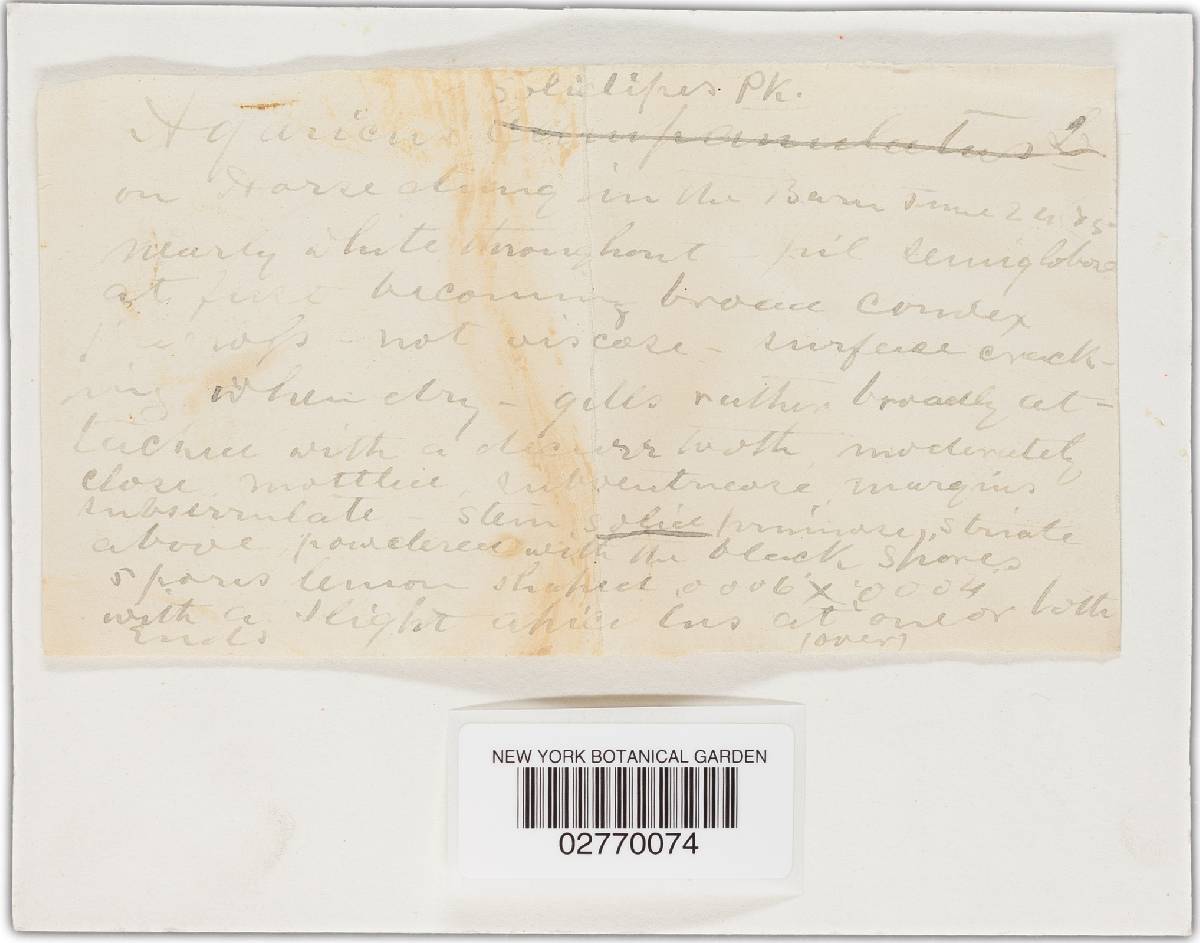 Solidipes Pk.
Agaricus campanulatus L
on Horse dung in the Barn June 24 85
nearly white throughout - pil semiglobose
at first becoming broad convex
not viscose - surface crack-
ing when dry - gills rather broadly at-
tached with a decurr tooth moderately
close, mottled, subventricose, margins
subserrulate - stem solid pruinose, striate
above, powdered with the black spores
spores lemon shaped .0006 x .0004
with a slight at one or both
ends (over)
NEW YORK BOTANICAL GARDEN
02770074